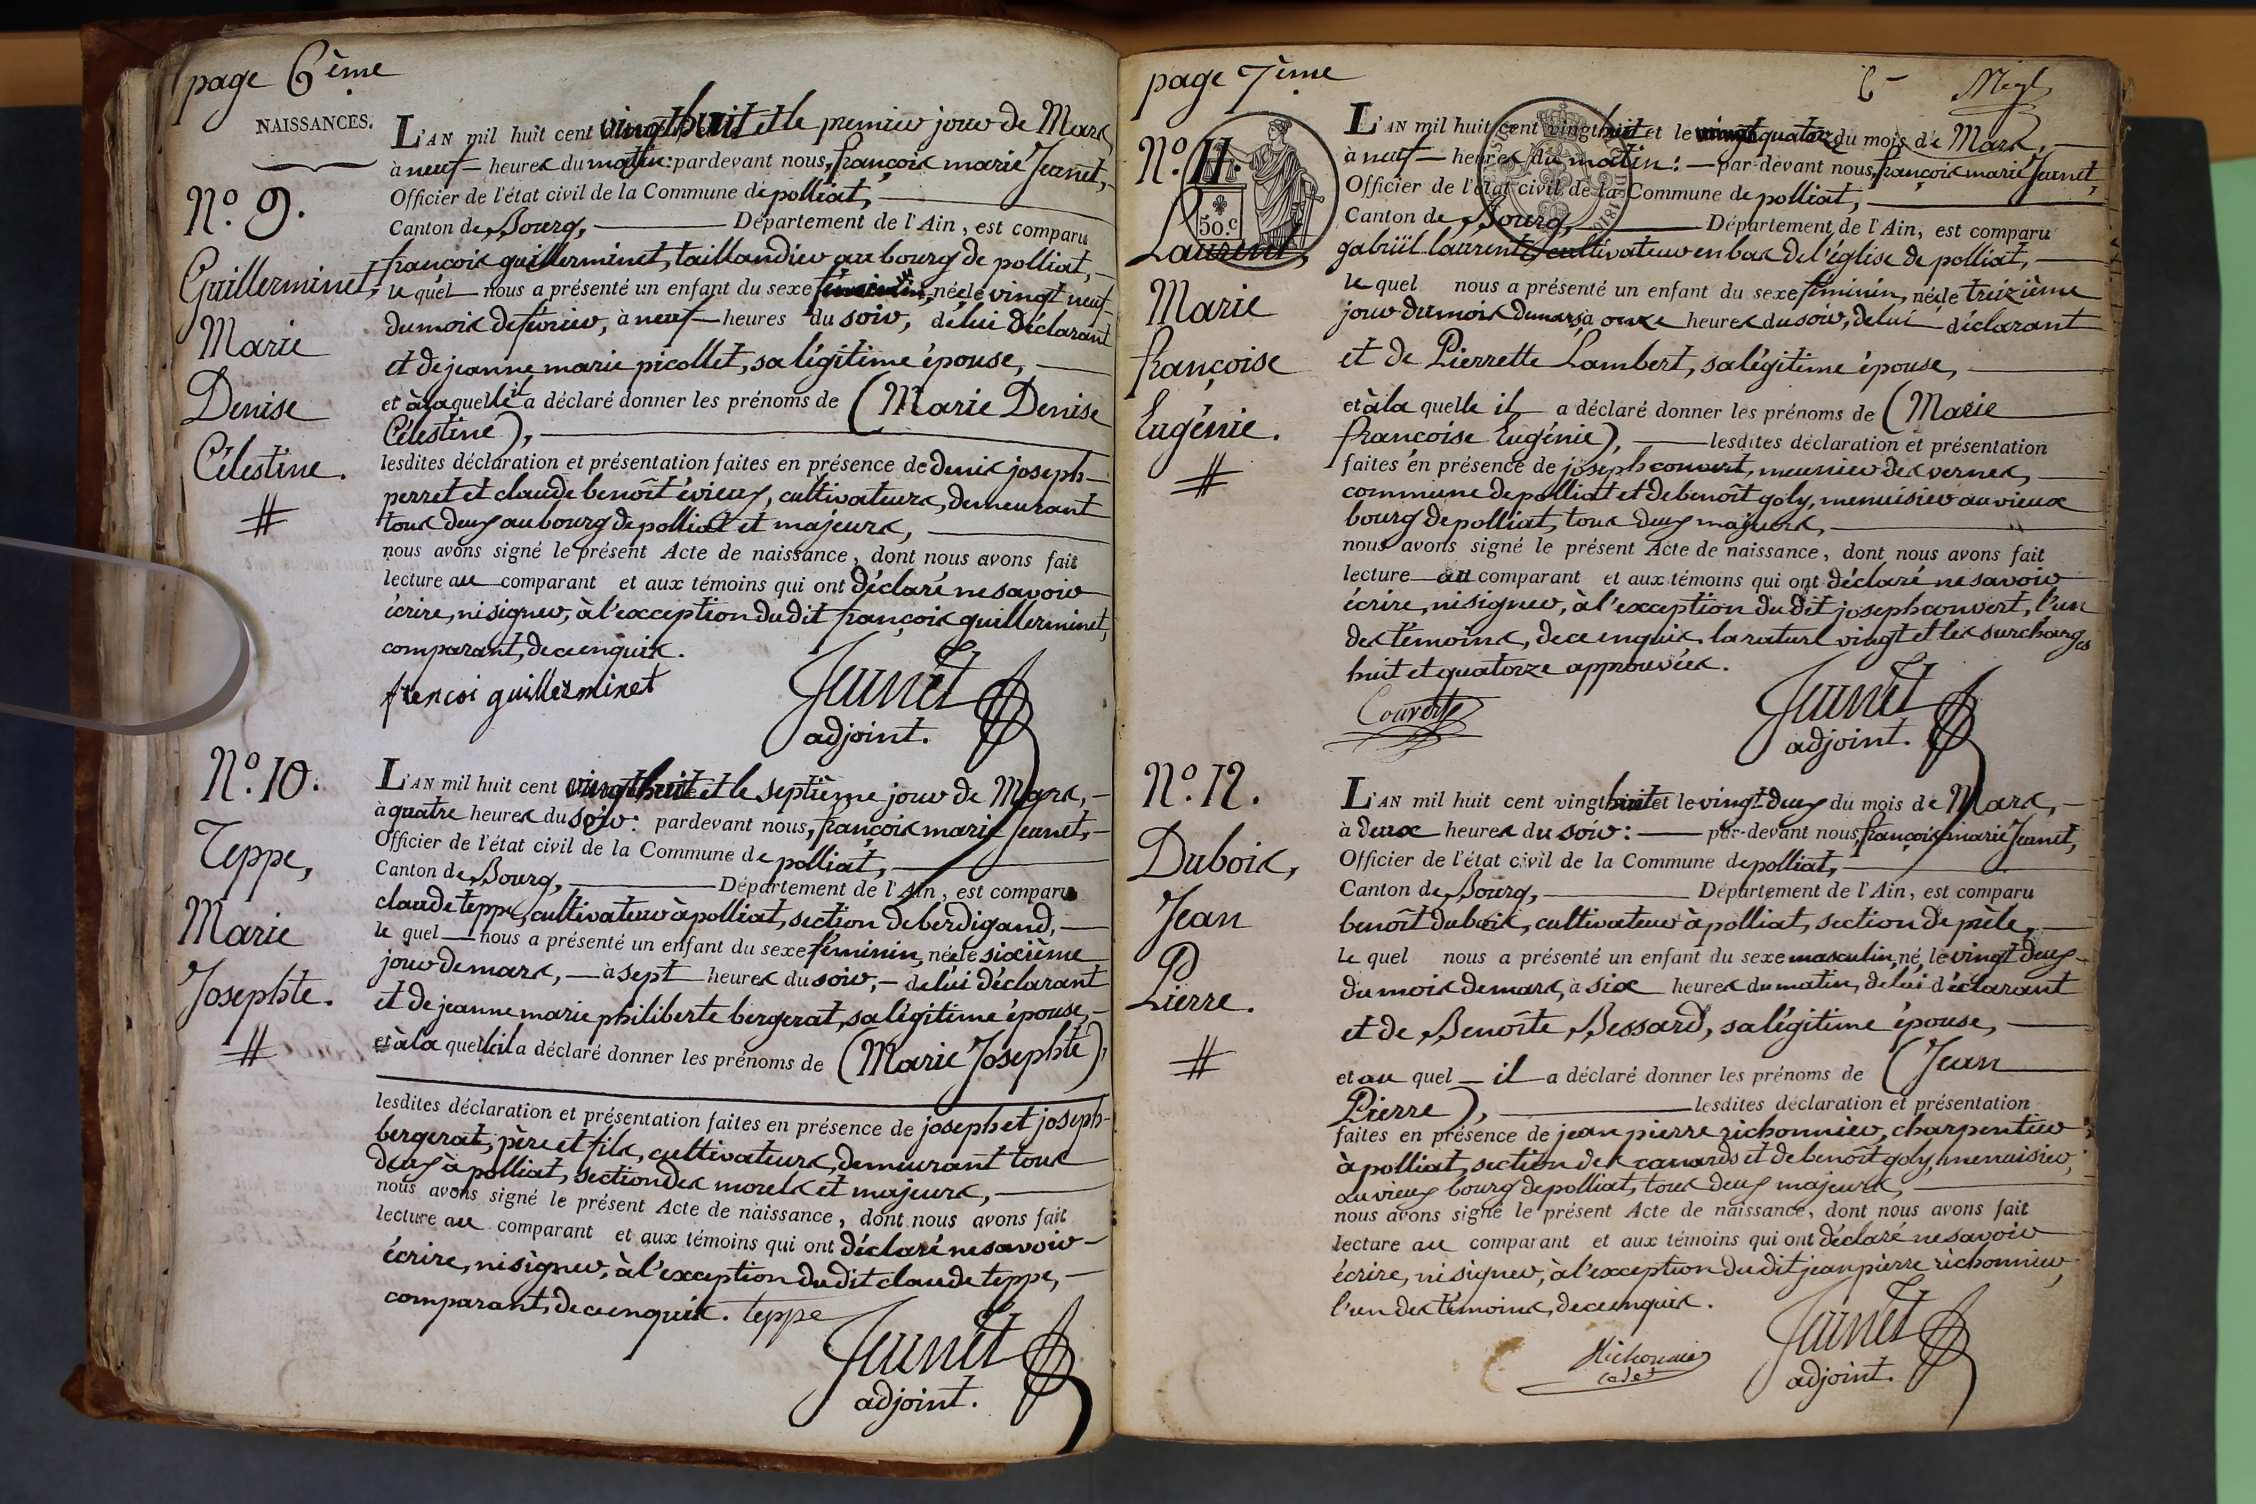 page 6ème
NAISSANCES.
L'AN mil huit cent vingt huit et le premier jour de Mars
à neuf heures du matin: pardevant nous, françois marie Jeunet,
Officier de l'état civil de la Commune de polliat,
Canton de Bourg, Département de l'Ain, est comparu
françois guillerminet, taillandier au bourg de polliat,
le quel nous a présenté un enfant du sexe féminin, née le vingt neuf
du mois de février, à neuf heures du soir, de lui déclarant
et de jeanne marie picollet, sa légitime épouse,
et à laquelle il a déclaré donner les prénoms de (Marie Denise
Célestine),
lesdites déclaration et présentation faites en présence de denis joseph
perret et claude benoît évieux, cultivateurs, demeurant
tous deux au bourg de polliat et majeurs,
nous avons signé le présent Acte de naissance, dont nous avons fait
lecture au comparant et aux témoins qui ont déclaré ne savoir
écrire, ni signer, à l'exception du dit françois guillerminet,
comparant, de ce enquis.
frencoi guillerminet
Jeunet
adjoint.
N.º 9.
Guillerminet,
Marie
Denise
Célestine.
N.º 10.
Teppe,
Marie
Josephte.
L'AN mil huit cent vingt huit et le septième jour de Mars,
à quatre heures du soir: pardevant nous, françois marie Jeunet,
Officier de l'état civil de la Commune de polliat,
Canton de Bourg, Département de l'Ain, est comparu
claude teppe, cultivateur à polliat, section de berdigand,
le quel nous a présenté un enfant du sexe féminin, née le sixième
jour de mars, à sept heures du soir, de lui déclarant
et de jeanne marie philiberte bergerat, sa légitime épouse,
et à la quelle il a déclaré donner les prénoms de (Marie Josephte),
lesdites déclaration et présentation faites en présence de joseph et joseph
bergerat, père et fils, cultivateurs, demeurant tous
deux à polliat, section des morels et majeurs,
nous avons signé le présent Acte de naissance, dont nous avons fait
lecture au comparant et aux témoins qui ont déclaré ne savoir
écrire, ni signer, à l'exception du dit claude teppe,
comparant, de ce enquis. teppe
Jeunet
adjoint.
page 7ème
N.º 11.
50.c
Laurent,
Marie
françoise
Eugénie.
L'AN mil huit cent vingt huit et le quatorze du mois de Mars,
à neuf heures du matin: par-devant nous, françois marie Jeunet,
Officier de l'état civil de la Commune de polliat,
Canton de Bourg, Département de l'Ain, est comparu
gabriël laurent, cultivateur en bas de l'église de polliat,
le quel nous a présenté un enfant du sexe féminin, née le treizième
jour du mois de mars, à onze heures du soir, de lui déclarant
et de Pierrette Lambert, sa légitime épouse,
et à la quelle il a déclaré donner les prénoms de (Marie
françoise Eugénie), lesdites déclaration et présentation
faites en présence de joseph convert, meunier des vernes,
commune de polliat et de benoît goly, menuisier au vieux
bourg de polliat, tous deux majeurs,
nous avons signé le présent Acte de naissance, dont nous avons fait
lecture au comparant et aux témoins qui ont déclaré ne savoir
écrire, ni signer, à l'exception du dit joseph convert, l'un
des témoins, de ce enquis. la rature vingt et les surcharges
huit et quatorze approuvées.
Convert
Jeunet
adjoint.
N.º 12.
Dubois,
Jean
Pierre.
L'AN mil huit cent vingt huit et le vingt deux du mois de Mars,
à deux heures du soir: par-devant nous, françois marie Jeunet,
Officier de l'état civil de la Commune de polliat,
Canton de Bourg, Département de l'Ain, est comparu
benoît dubois, cultivateur à polliat, section de prèle,
le quel nous a présenté un enfant du sexe masculin, né le vingt deux
du mois de mars, à six heures du matin, de lui déclarant
et de Benoîte Bessard, sa légitime épouse,
et au quel il a déclaré donner les prénoms de (Jean
Pierre), lesdites déclaration et présentation
faites en présence de jean pierre richonnier, charpentier
à polliat, section des canards et de benoît goly, menuisier,
au vieux bourg de polliat, tous deux majeurs,
nous avons signé le présent Acte de naissance, dont nous avons fait
lecture au comparant et aux témoins qui ont déclaré ne savoir
écrire, ni signer, à l'exception du dit jean pierre richonnier,
l'un des témoins, de ce enquis.
cadet
Jeunet
adjoint.